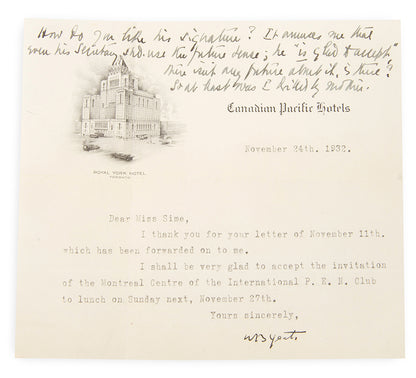 How do you like his signature? It annoys me that
even his Secretary shd. use the future tense; he "is glad to accept"
there isn't any future about it, is there?
So at least was I drilled by mother.
Canadian Pacific Hotels
ROYAL YORK HOTEL
TORONTO
November 24th. 1932.
Dear Miss Sime,
I thank you for your letter of November 11th.
which has been forwarded on to me.
I shall be very glad to accept the invitation
of the Montreal Centre of the International P. E. N. Club
to lunch on Sunday next, November 27th.
Yours sincerely,
WB Yeats